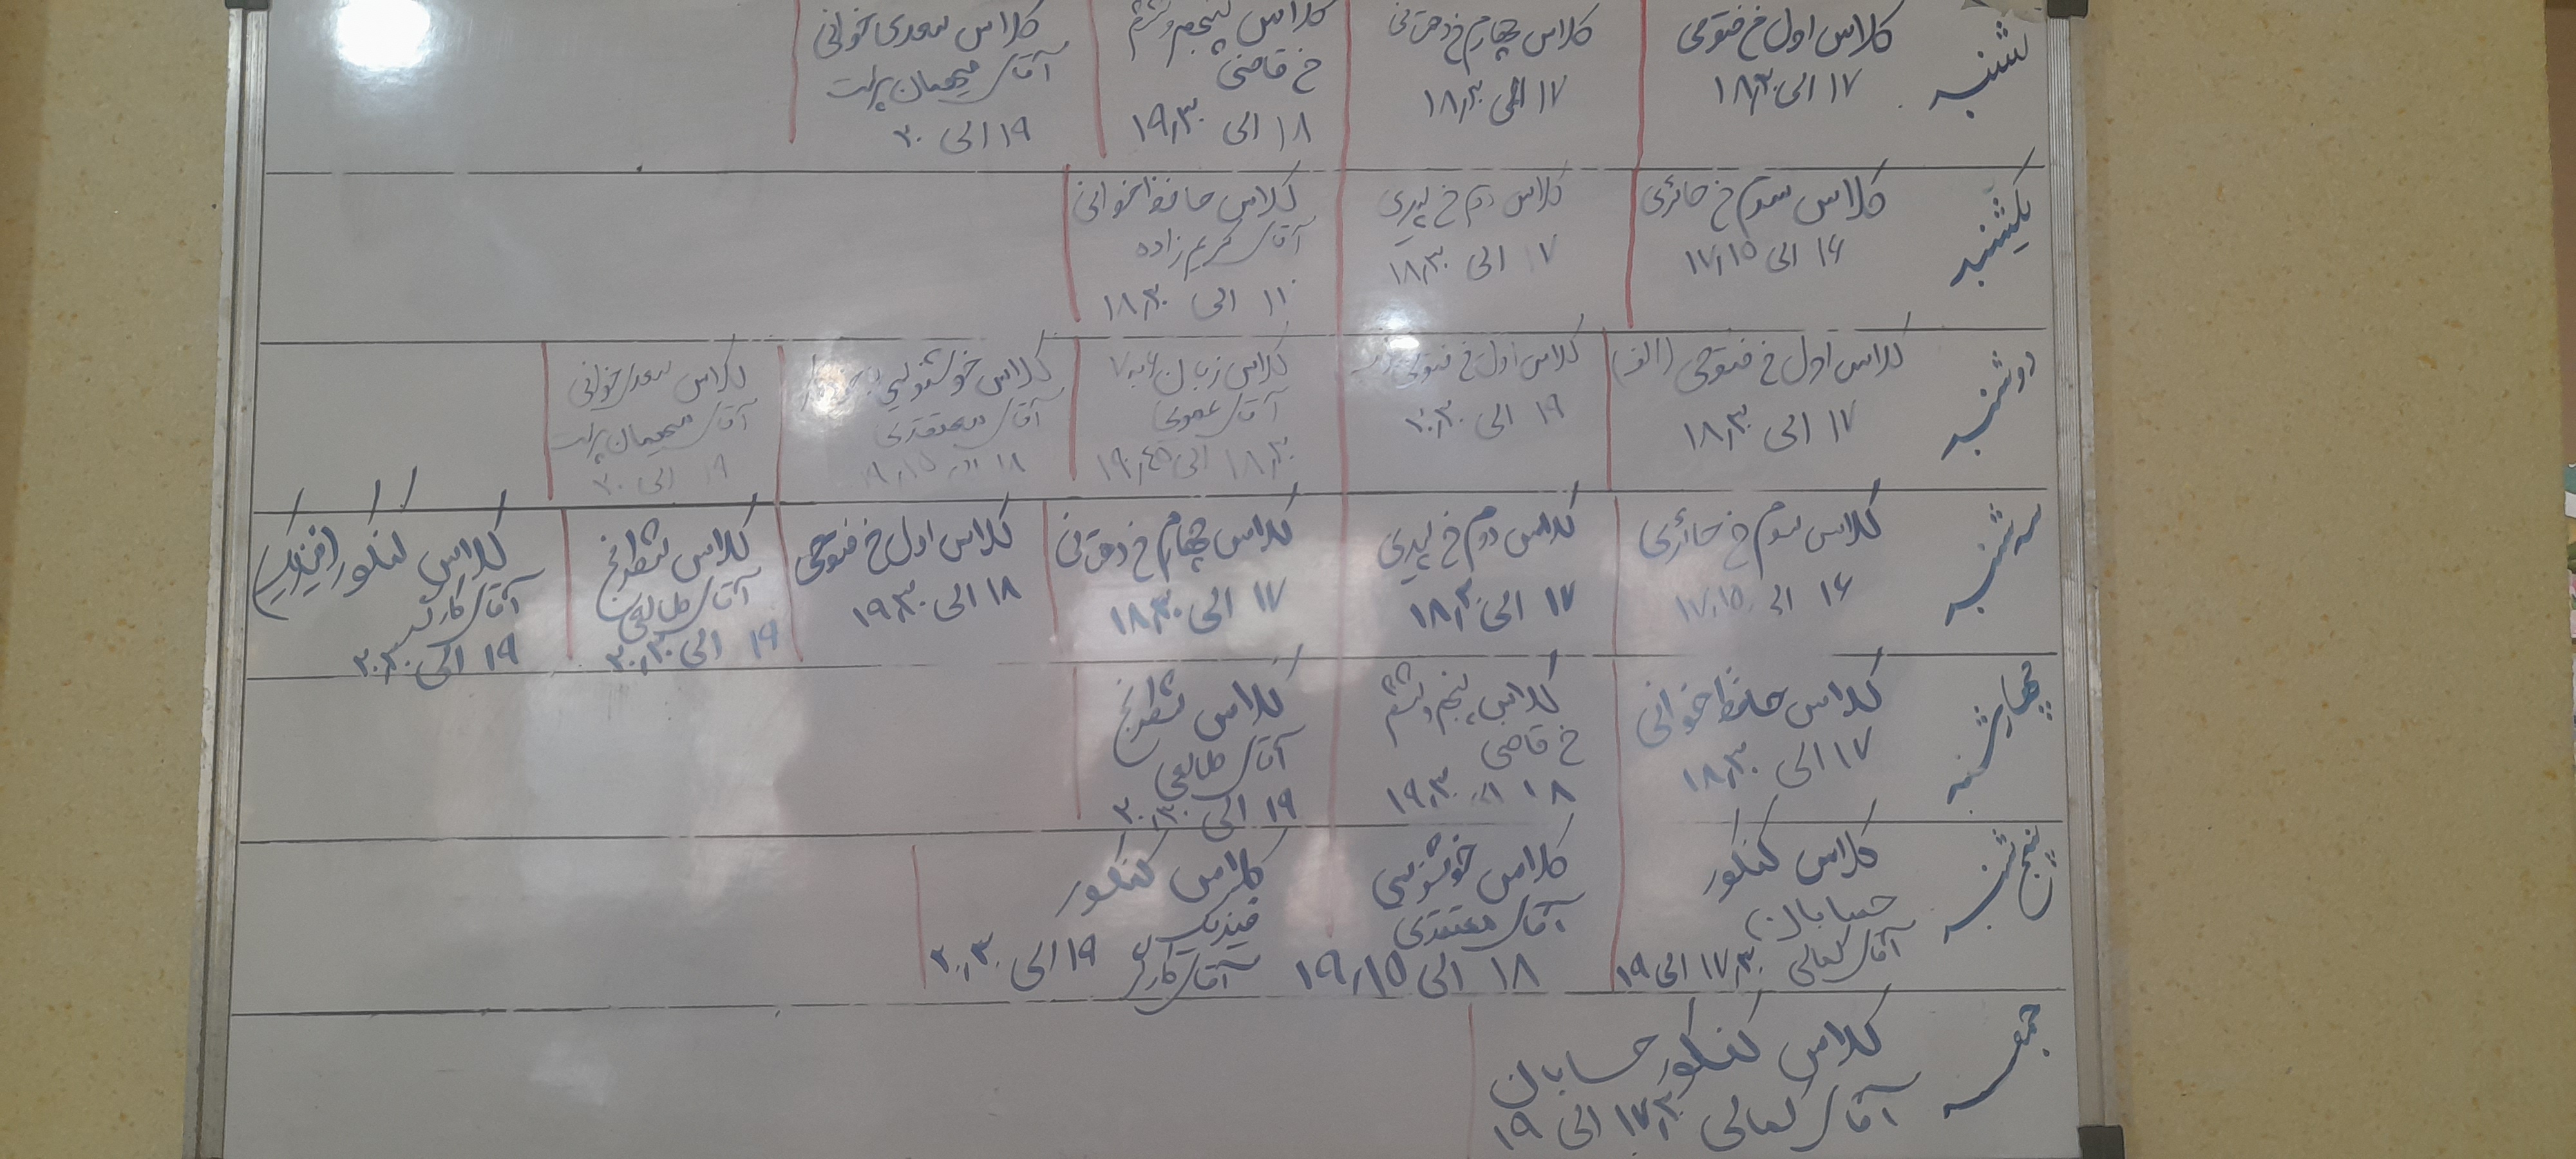 شنبه
کلاس اول خ فتوحی
۱۷ الی ۱۸٫۳۰
کلاس چهارم خ دهقانی
۱۷ الی ۱۸٫۳۰
کلاس پنجم و ششم
خ قاضی
۱۸ الی ۱۹٫۳۰
کلاس سعدی خوانی
آقای میهمان پرست
۱۹ الی ۲۰
یکشنبه
کلاس سوم خ حائری
۱۶ الی ۱۷٫۱۵
کلاس دوم خ پیری
۱۷ الی ۱۸٫۳۰
کلاس حافظ خوانی
آقای کریم زاده
الی ۱۸٫۳۰
دوشنبه
کلاس اول خ فتوحی (الف)
۱۷ الی ۱۸٫۳۰
کلاس اول خ فتوحی
۱۹ الی ۲۰٫۳۰
کلاس زبان
آقای
۱۸٫۳۰ الی ۱۹٫۴۵
کلاس خوشنویسی
آقای معتقدی
۱۸
کلاس سعدی خوانی
آقای میهمان پرست
۱۹ الی ۲۰
سه شنبه
کلاس سوم خ حائری
۱۶ الی ۱۷٫۱۵
کلاس دوم خ پیری
۱۷ الی ۱۸٫۳۰
کلاس چهارم خ دهقانی
۱۷ الی ۱۸٫۳۰
کلاس اول خ فتوحی
۱۸ الی ۱۹٫۳۰
کلاس شطرنج
آقای طالعی
۱۹ الی ۲۰٫۳۰
کلاس کنکور (فیزیک)
آقای کارگر
۱۹ الی ۲۰٫۳۰
چهارشنبه
کلاس حافظ خوانی
۱۷ الی ۱۸٫۳۰
کلاس پنجم و ششم
خ قاضی
۱۸ الی ۱۹٫۳۰
کلاس شطرنج
آقای طالعی
۱۹ الی ۲۰٫۳۰
پنج شنبه
کلاس کنکور
حسابان
آقای کمالی ۱۷٫۳۰ الی ۱۹
کلاس خوشنویسی
آقای معتقدی
۱۸ الی ۱۹٫۱۵
کلاس کنکور
فیزیک
آقای کارگر ۱۹ الی ۲۰٫۳۰
جمعه
کلاس کنکور حسابان
آقای کمالی ۱۷٫۳۰ الی ۱۹